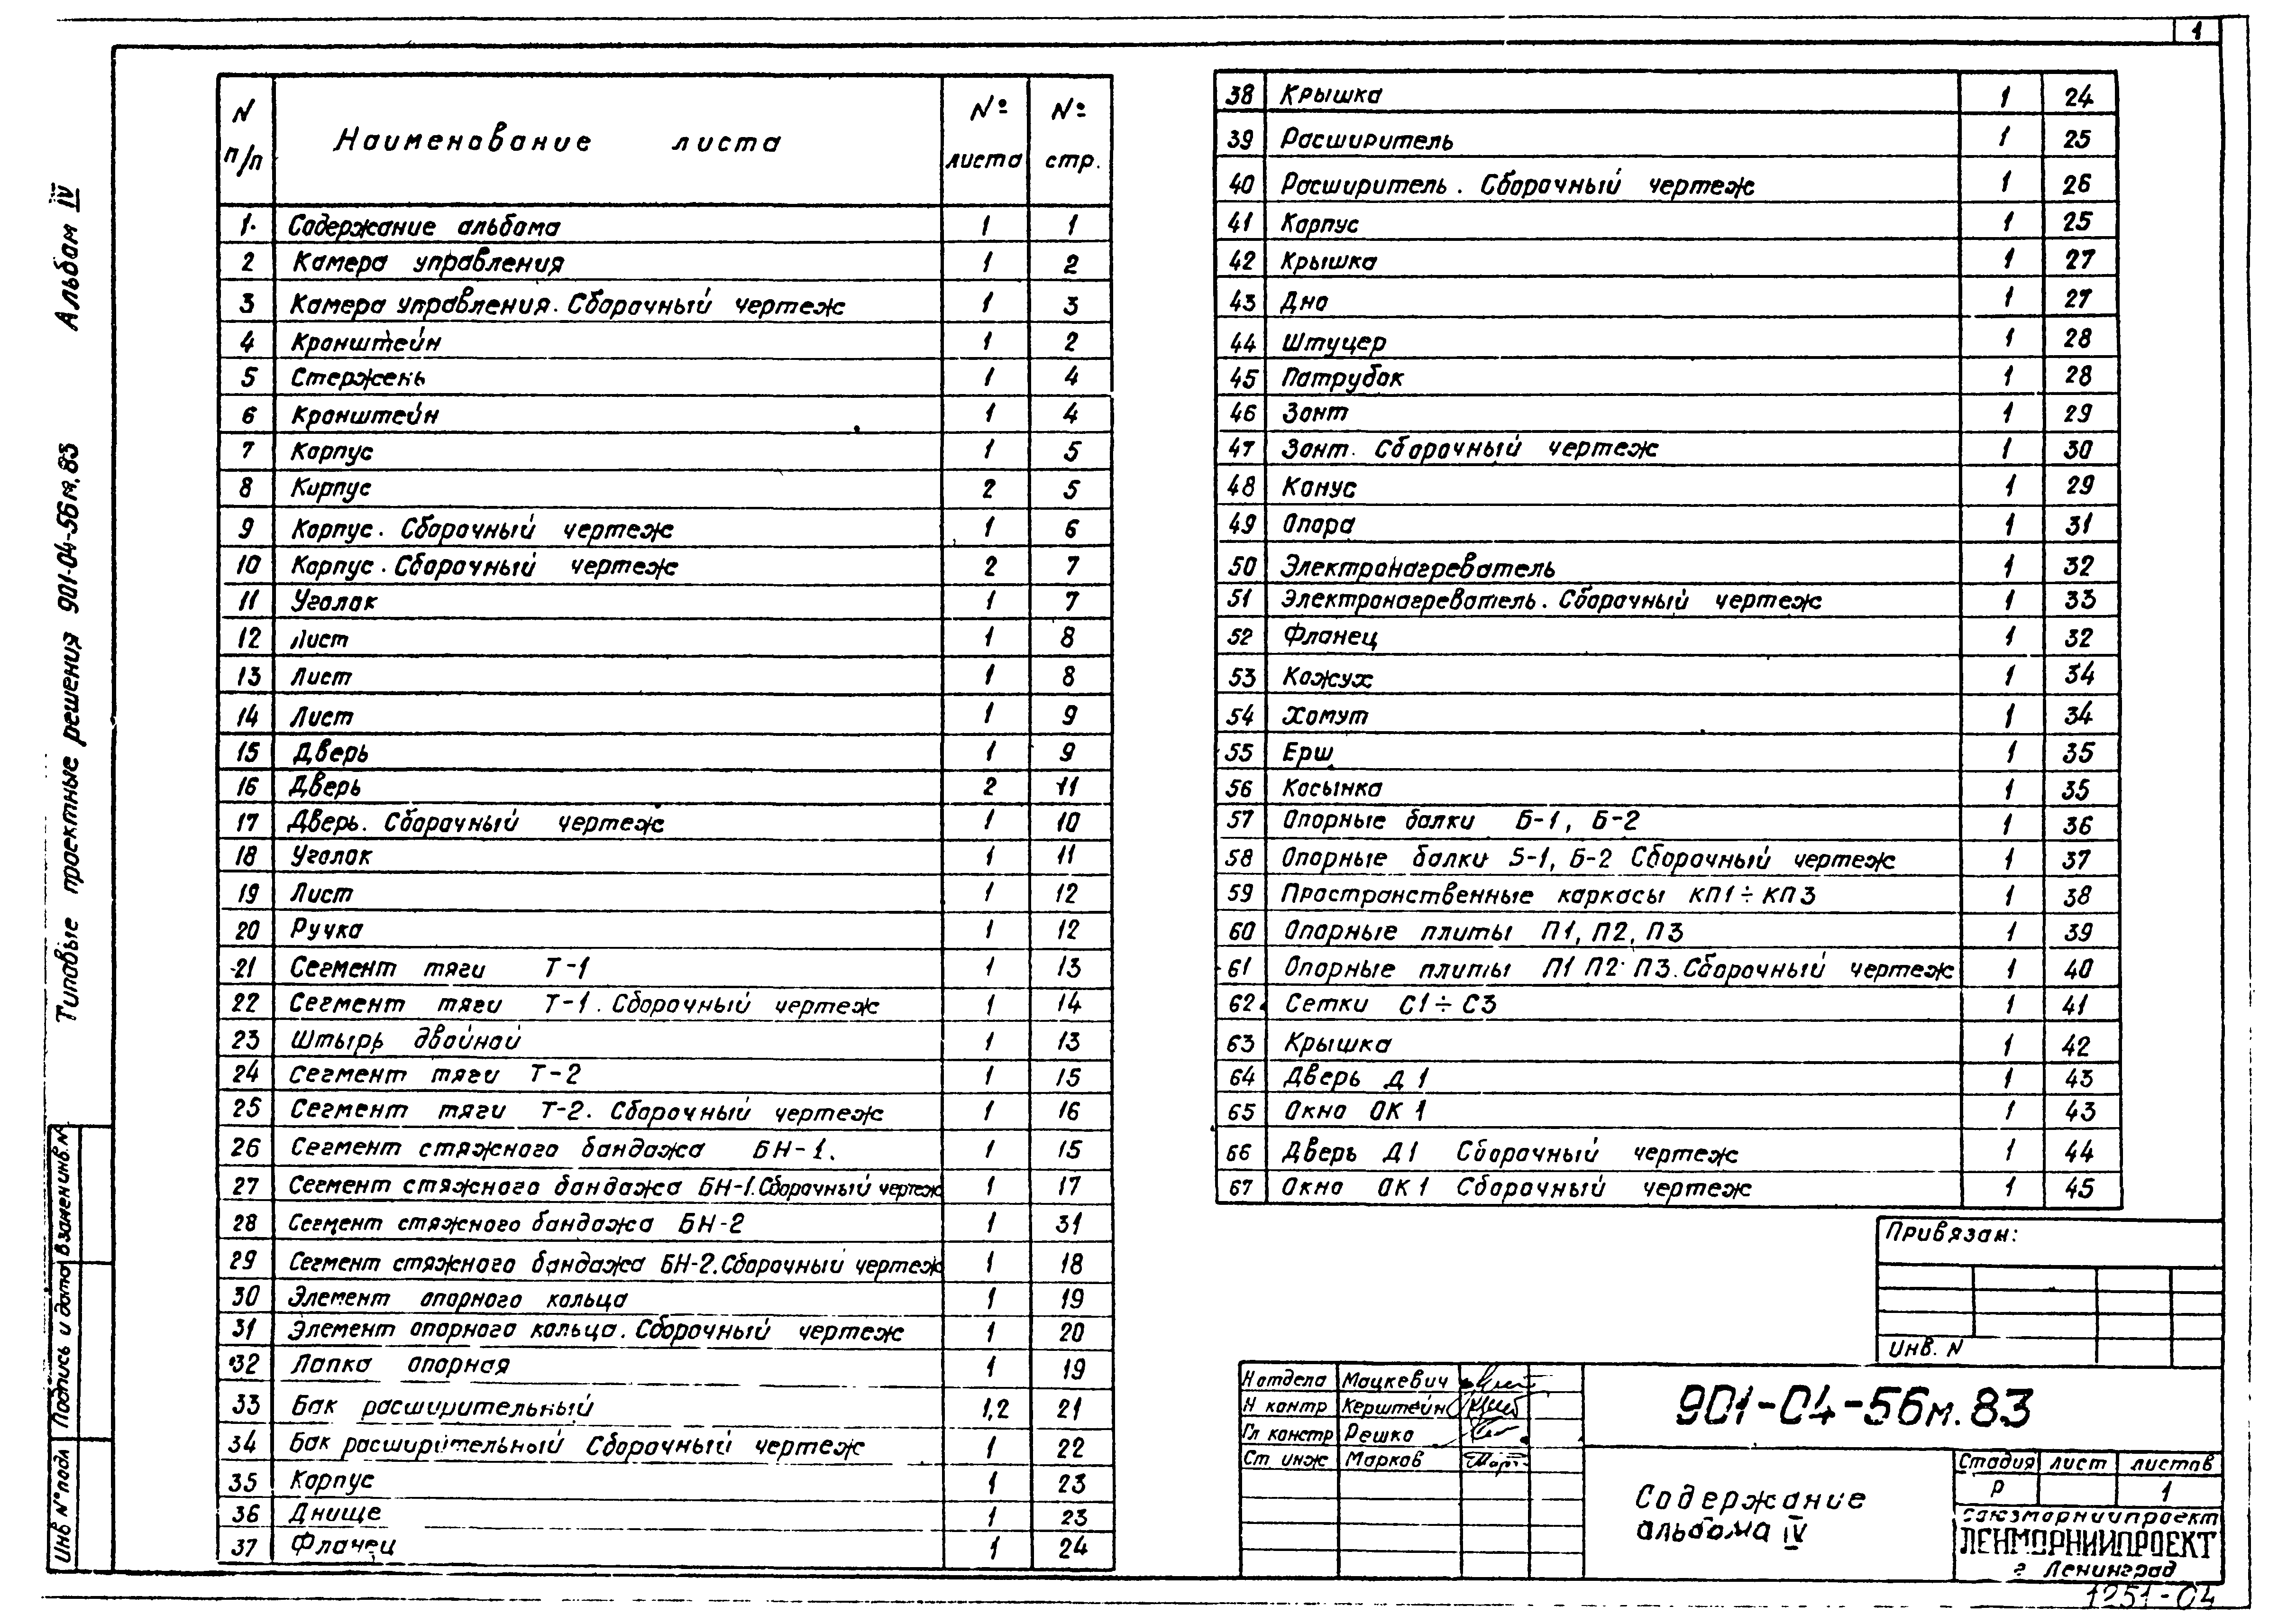 1
Альбом IV
Типовые проектные решения 901-04-56м.83
N п/п Наименование листа № листа № стр.
1 Содержание альбома 1 1
2 Камера управления 1 2
3 Камера управления. Сборочный чертеж 1 3
4 Кронштейн 1 2
5 Стержень 1 4
6 Кронштейн 1 4
7 Корпус 1 5
8 Корпус 2 5
9 Корпус. Сборочный чертеж 1 6
10 Корпус. Сборочный чертеж 2 7
11 Уголок 1 7
12 Лист 1 8
13 Лист 1 8
14 Лист 1 9
15 Дверь 1 9
16 Дверь 2 11
17 Дверь. Сборочный чертеж 1 10
18 Уголок 1 11
19 Лист 1 12
20 Ручка 1 12
21 Сегмент тяги Т-1 1 13
22 Сегмент тяги Т-1. Сборочный чертеж 1 14
23 Штырь двойной 1 13
24 Сегмент тяги Т-2 1 15
25 Сегмент тяги Т-2. Сборочный чертеж 1 16
26 Сегмент стяжного бандажа БН-1. 1 15
27 Сегмент стяжного бандажа БН-1. Сборочный чертеж 1 17
28 Сегмент стяжного бандажа БН-2 1 31
29 Сегмент стяжного бандажа БН-2. Сборочный чертеж 1 18
30 Элемент опорного кольца 1 19
31 Элемент опорного кольца. Сборочный чертеж 1 20
32 Лапка опорная 1 19
33 Бак расширительный 1,2 21
34 Бак расширительный Сборочный чертеж 1 22
35 Корпус 1 23
36 Днище 1 23
37 Фланец 1 24
38 Крышка 1 24
39 Расширитель 1 25
40 Расширитель. Сборочный чертеж 1 26
41 Корпус 1 25
42 Крышка 1 27
43 Дно 1 27
44 Штуцер 1 28
45 Патрубок 1 28
46 Зонт 1 29
47 Зонт. Сборочный чертеж 1 30
48 Конус 1 29
49 Опора 1 31
50 Электронагреватель 1 32
51 Электронагреватель. Сборочный чертеж 1 33
52 Фланец 1 32
53 Кожух 1 34
54 Хомут 1 34
55 Ерш 1 35
56 Косынка 1 35
57 Опорные балки Б-1, Б-2 1 36
58 Опорные балки Б-1, Б-2 Сборочный чертеж 1 37
59 Пространственные каркасы КП1÷КП3 1 38
60 Опорные плиты П1, П2, П3 1 39
61 Опорные плиты П1 П2 П3. Сборочный чертеж 1 40
62 Сетки С1÷С3 1 41
63 Крышка 1 42
64 Дверь Д1 1 43
65 Окно ОК1 1 43
66 Дверь Д1 Сборочный чертеж 1 44
67 Окно ОК1 Сборочный чертеж 1 45
Привязан:
Инв. N
Н отдела Мацкевич
Н контр Керштейн
Гл констр Решко
Ст инж Марков
901-04-56м.83
Содержание
альбома IV
Стадия лист листов
Р 1
Союзморниипроект
ЛЕНМОРНИИПРОЕКТ
г Ленинград
1251-04
Взамен инв. N
Подпись и дата
Инв N° подл